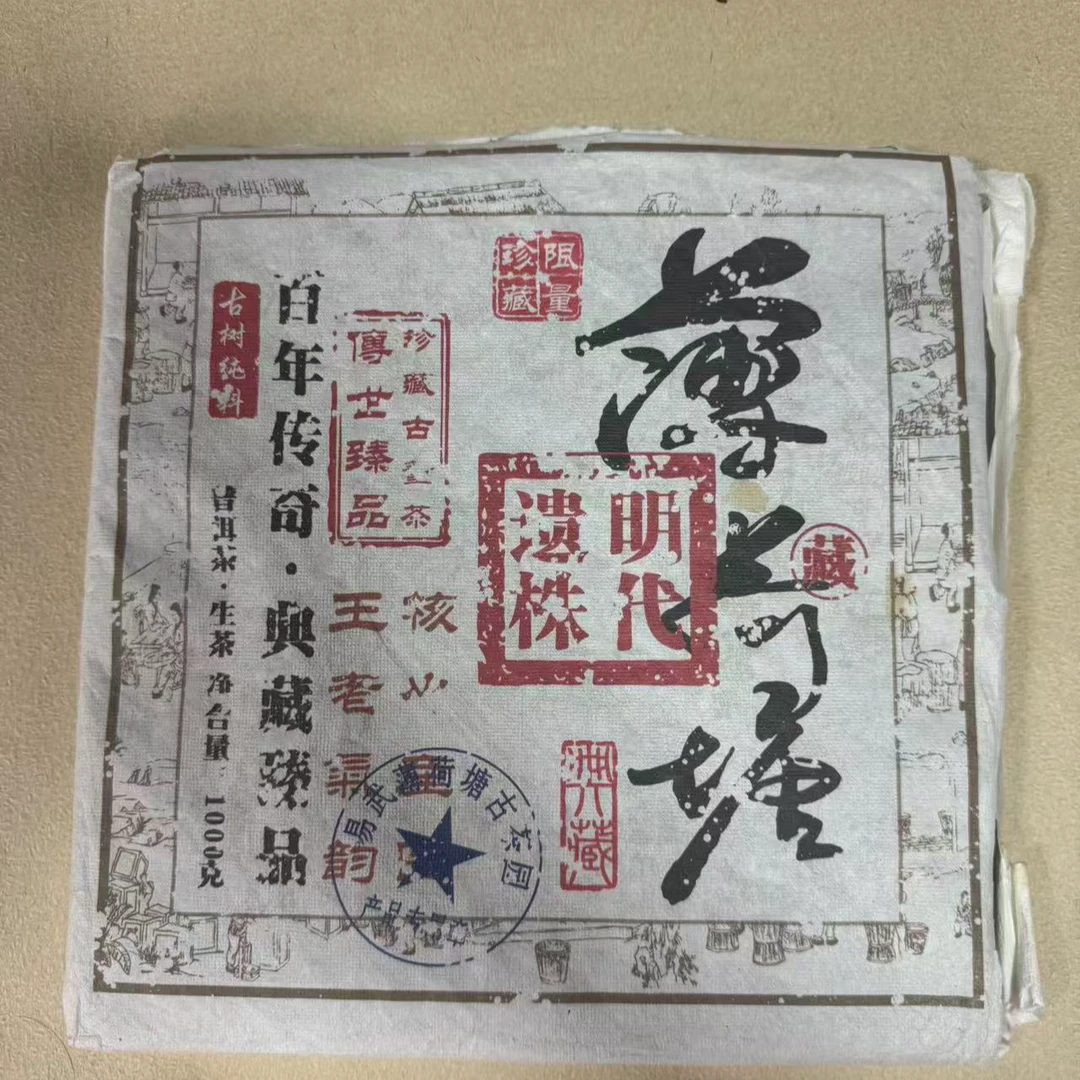 薄荷塘
限量
珍藏
藏
明代
遗株
珍藏古茶
傳世臻品
核心
王者氣韵
易武薄荷塘古茶园
产品专用章
百年传奇·典藏臻品
古树纯料
普洱茶·生茶 净含量：1000克